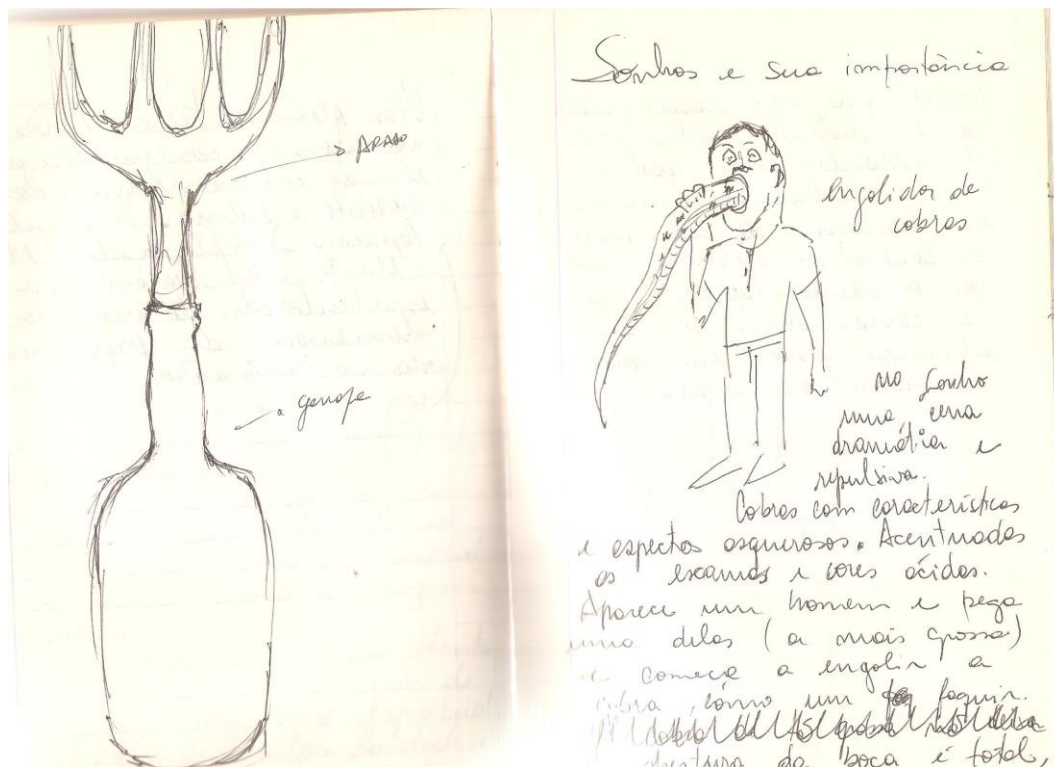 ARADO
garrafa
Sonhos e sua importância
Engolidor de
cobras
no sonho
uma cena
dramática e
repulsiva.
Cobras com características
e aspectos asquerosos. Acentuadas
as escamas e cores ácidas.
Aparece um homem e pega
uma delas (a mais grossa)
e começa a engolir a
cobra, como um faquir.
abertura da boca é total,